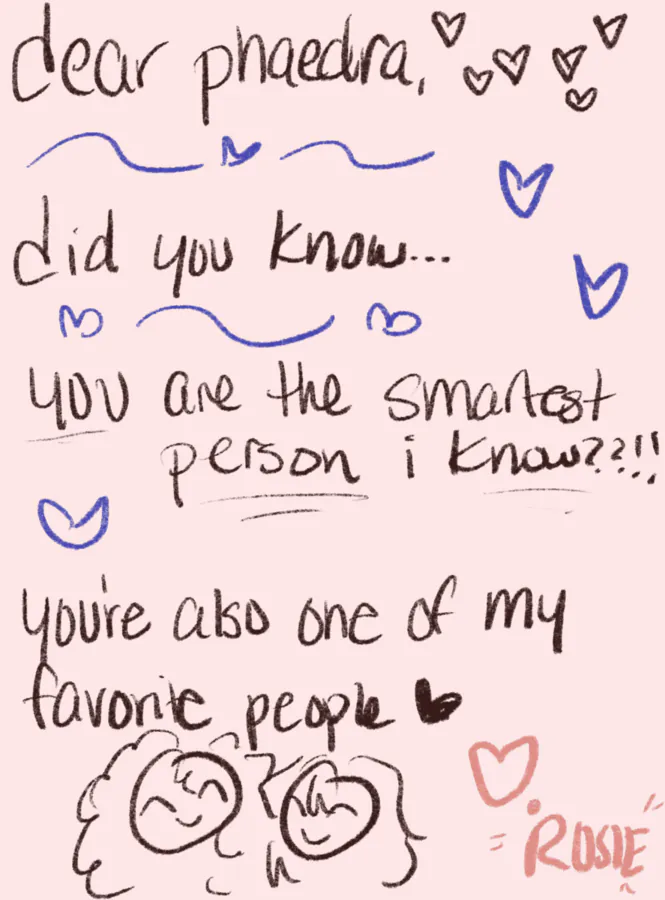 dear phaedra,
did you know...
you are the smartest
person i know??!!
you're also one of my
favorite people
ROSIE